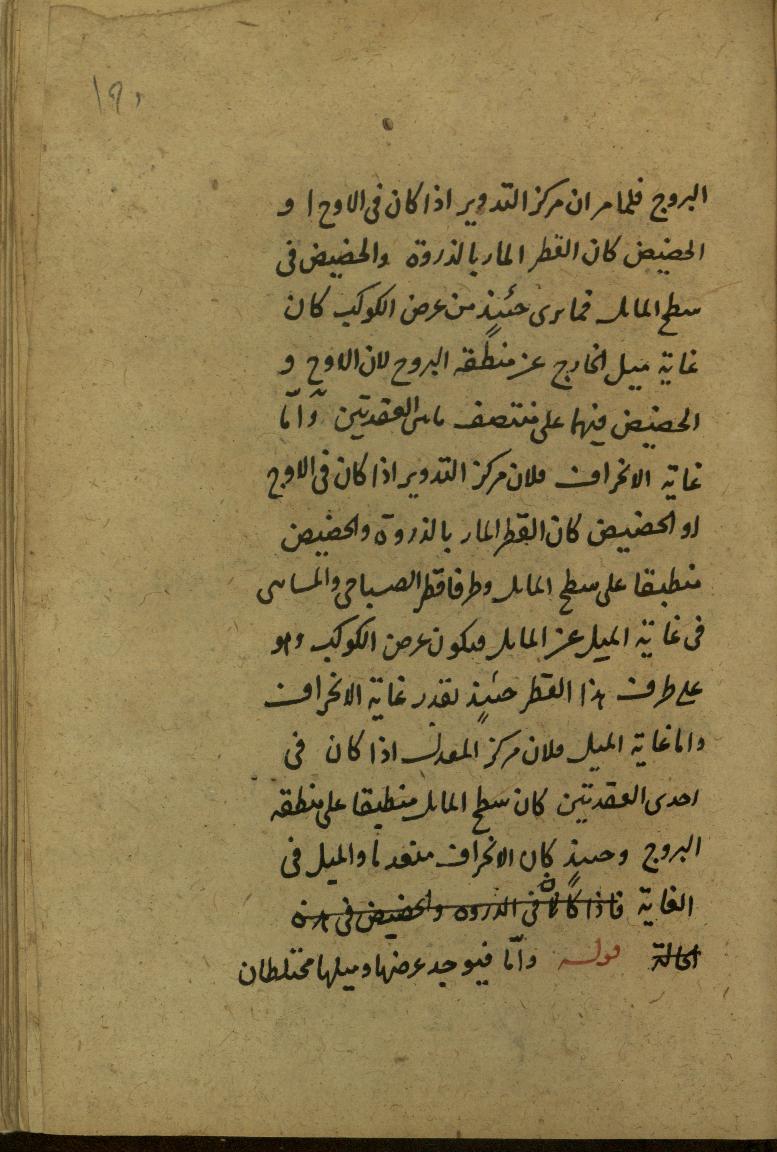 البروج فلما مر ان مركز التدوير اذا كان فى الاوج ا و
الحضيض كان القطر المار بالذروة والحضيض فى
سطح المايل فما يرى حينئذ من عرض الكوكب كان
غاية ميل الخارج عن منطقه البروج لان الاوج و
الحضيض فيهما على منتصف ما بين العقدتين وامّا
غاية الانحراف فلان مركز التدوير اذا كان فى الاوج
او الحضيض كان القطر المار بالذروة والحضيض
منطبقا على سطح المايل وطرفا قطر الصباحى والمسائى
فى غاية الميل عن المايل فيكون عرض الكوكب وهو
على طرف هذا القطر حينئذ بقدر غاية الانحراف
واما غاية الميل فلان مركز المعدل اذا كان فى
احدى العقدتين كان سطح المايل منطبقا على منطقه
البروج وحينئذ كان الانحراف منعدما والميل فى
الغاية فاذا كانا فى الذروه والحضيض فى هذه
الحالة قوله وامّا فيوجد عرضها وميلها مختلطان